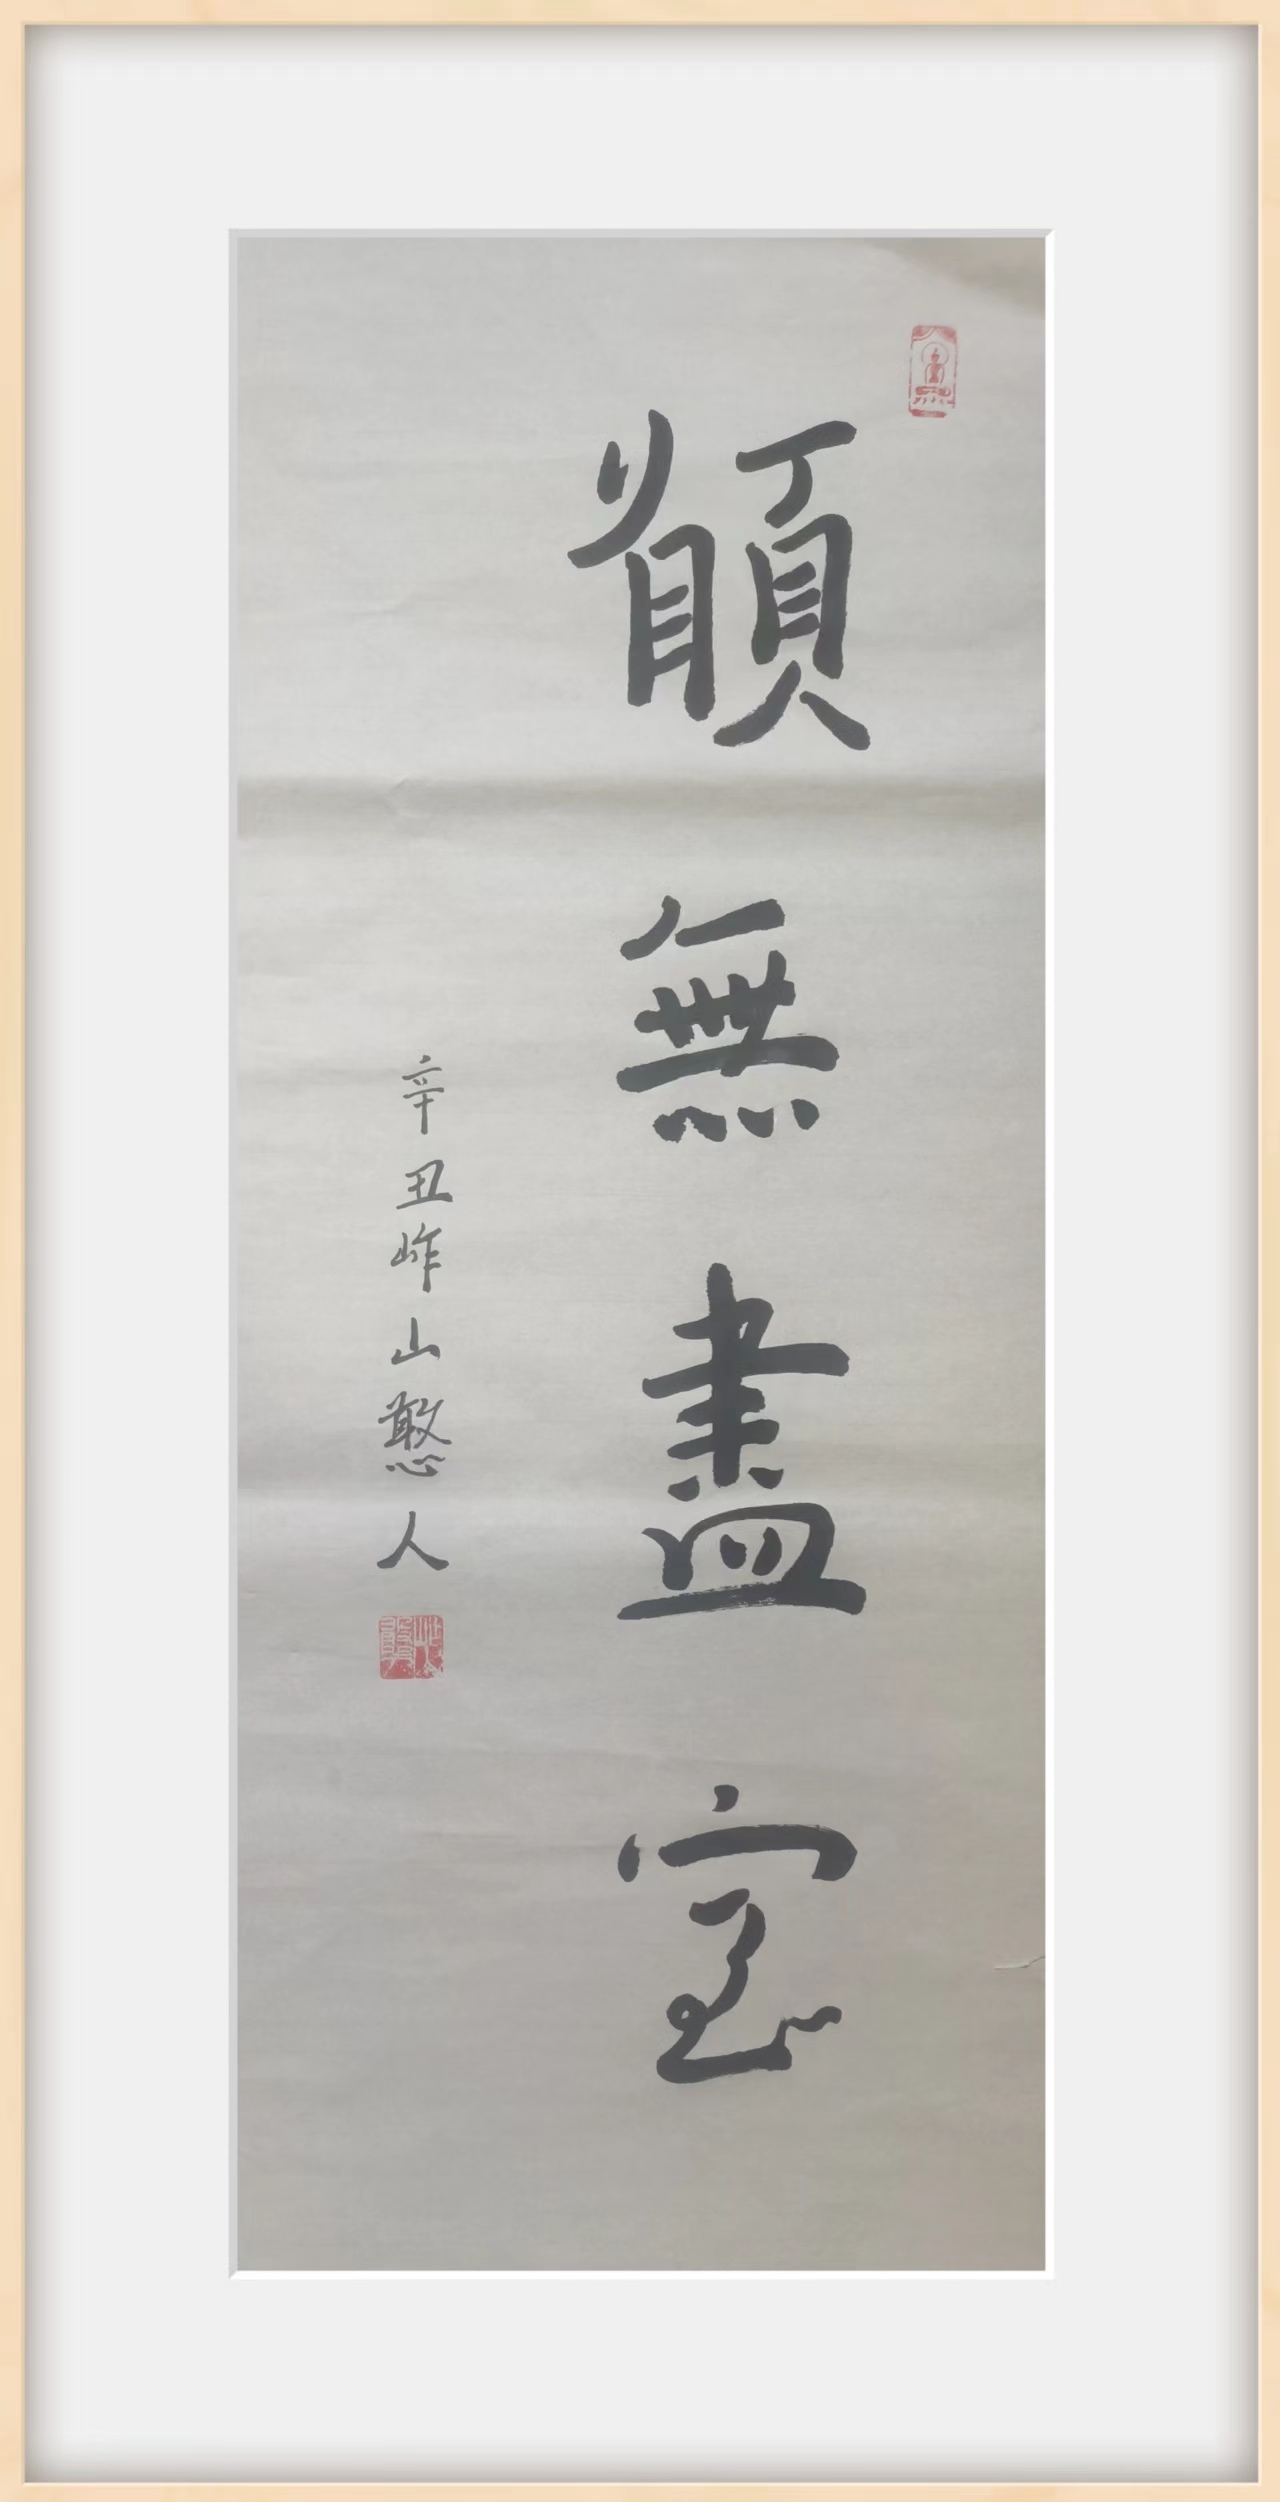 願無盡室
辛丑岞山憨人